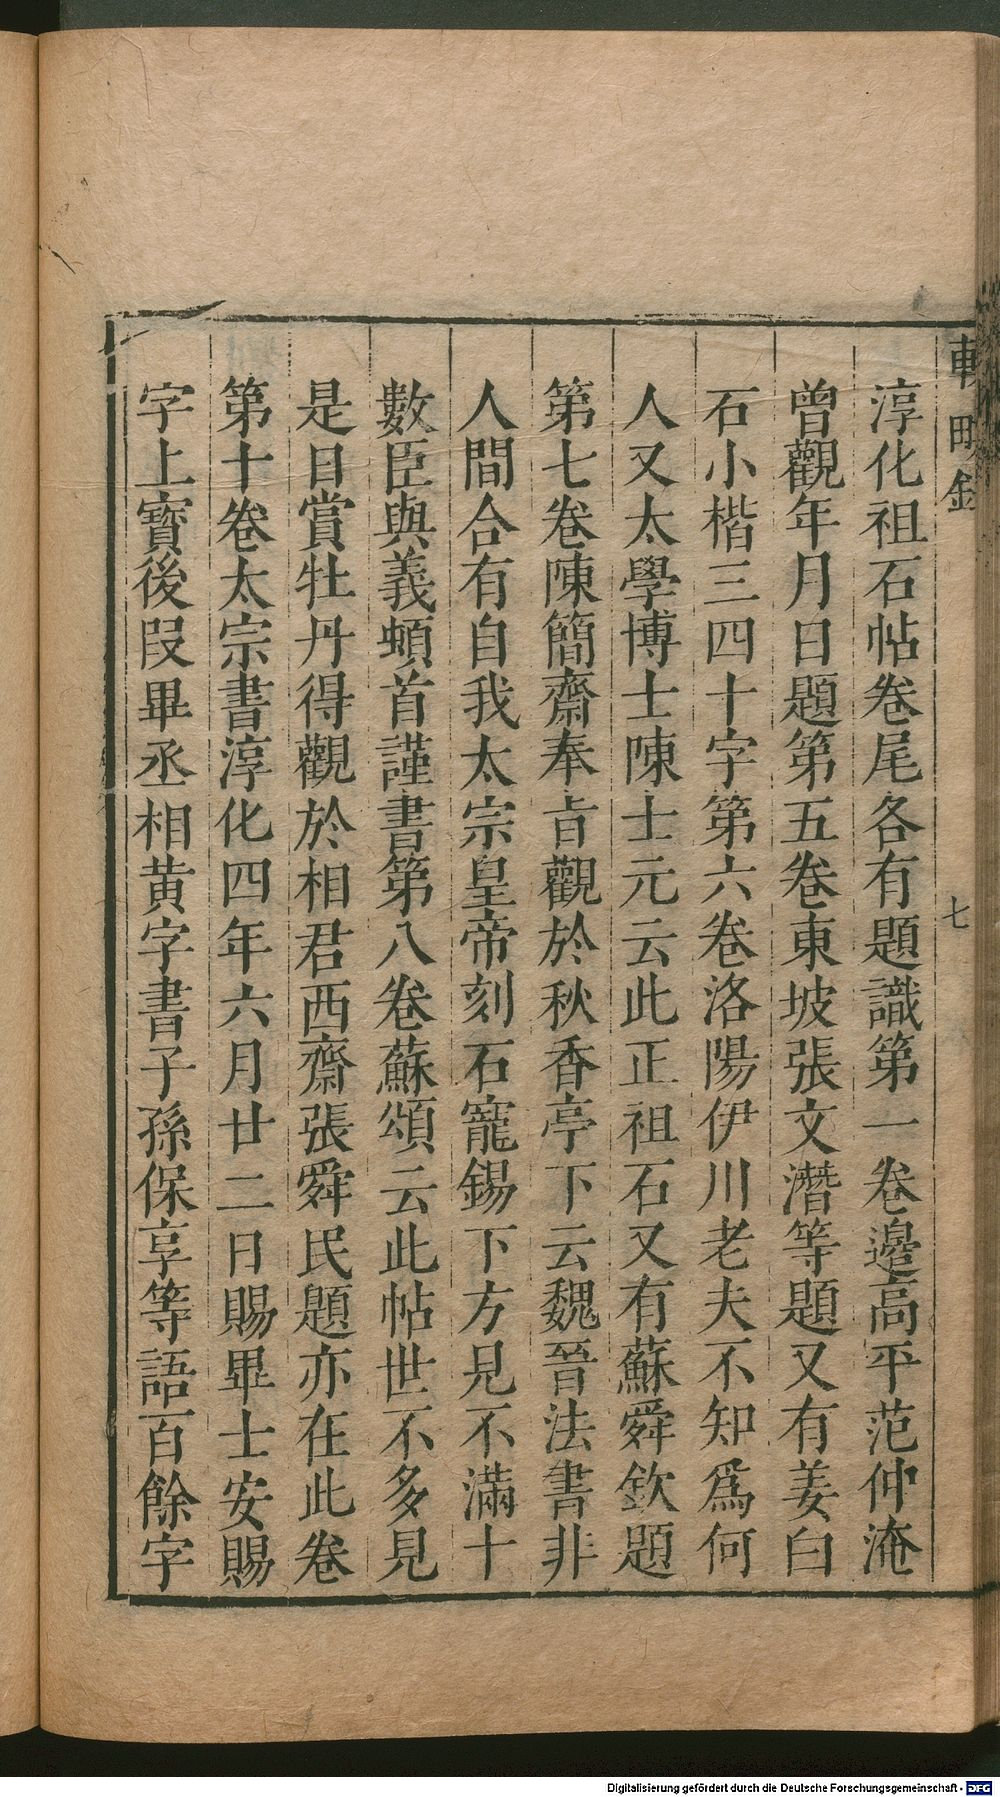 淳化祖石帖卷尾各有題識第一卷邉高平范仲淹
曾觀年月日題第五卷東坡張文潛等題又有姜白
石小楷三四十字第六卷洛陽伊川老夫不知爲何
人又太學博士陳士元云此正祖石又有蘇舜欽題
第七卷陳簡齋奉㫖觀於秋香亭下云魏晉法書非
人間合有自我太宗皇帝刻石寵錫下方見不滿十
數臣與義頓首謹書第八卷蘇頌云此帖世不多見
是日賞牡丹得觀於相君西齋張舜民題亦在此卷
第十卷太宗書淳化四年六月廿二日賜畢士安賜
字上寳後叚畢丞相黄字書子孫保享等語百餘字
七
Digitalisierung gefördert durch die Deutsche Forschungsgemeinschaft - DFG